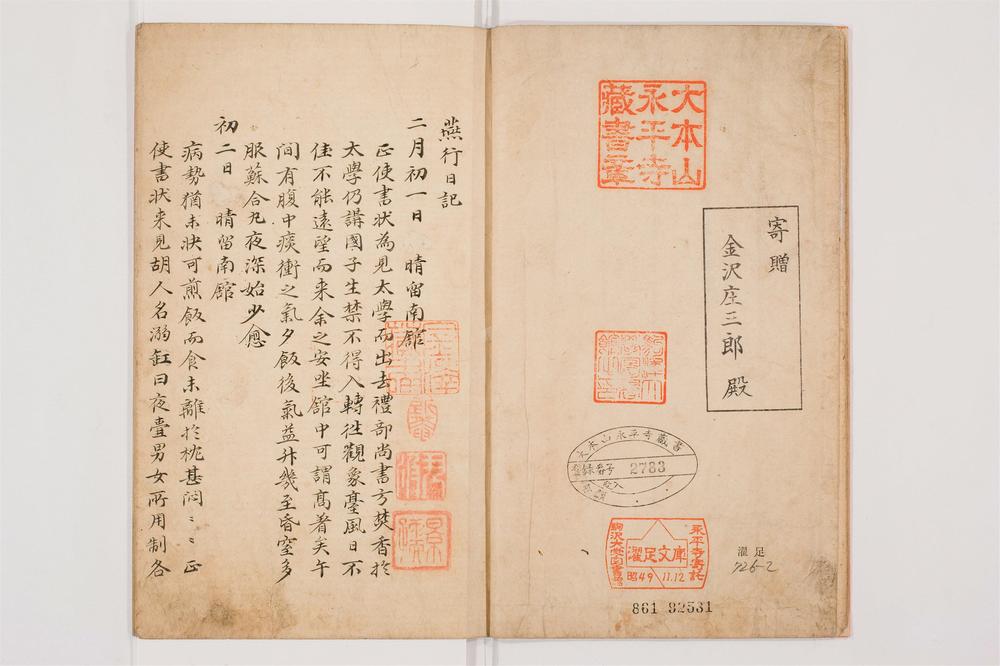 大本山
永平寺
蔵書章
寄贈
金沢庄三郎 殿
大本山永平寺蔵書
登録番号 2783
永平寺寄託
濯足文庫
昭49 11.12
濯足
726-2
861 92531
燕行日記
二月初一日 晴留南舘
正使書状為見太學而出去禮部尚書方焚香於
太學仍講國子生禁不得入轉徃觀象臺風日不
佳不能遠望而来余之安坐舘中可謂髙着矣午
間有腹中痰衝之氣夕飯後氣益升幾至昏窒多
服蘇合丸夜深始少愈
初二日 晴留南舘
病勢猶未快可煎飯而食未離於枕甚悶〻正
使書状来見胡人名溺缸曰夜壷男女所用制各